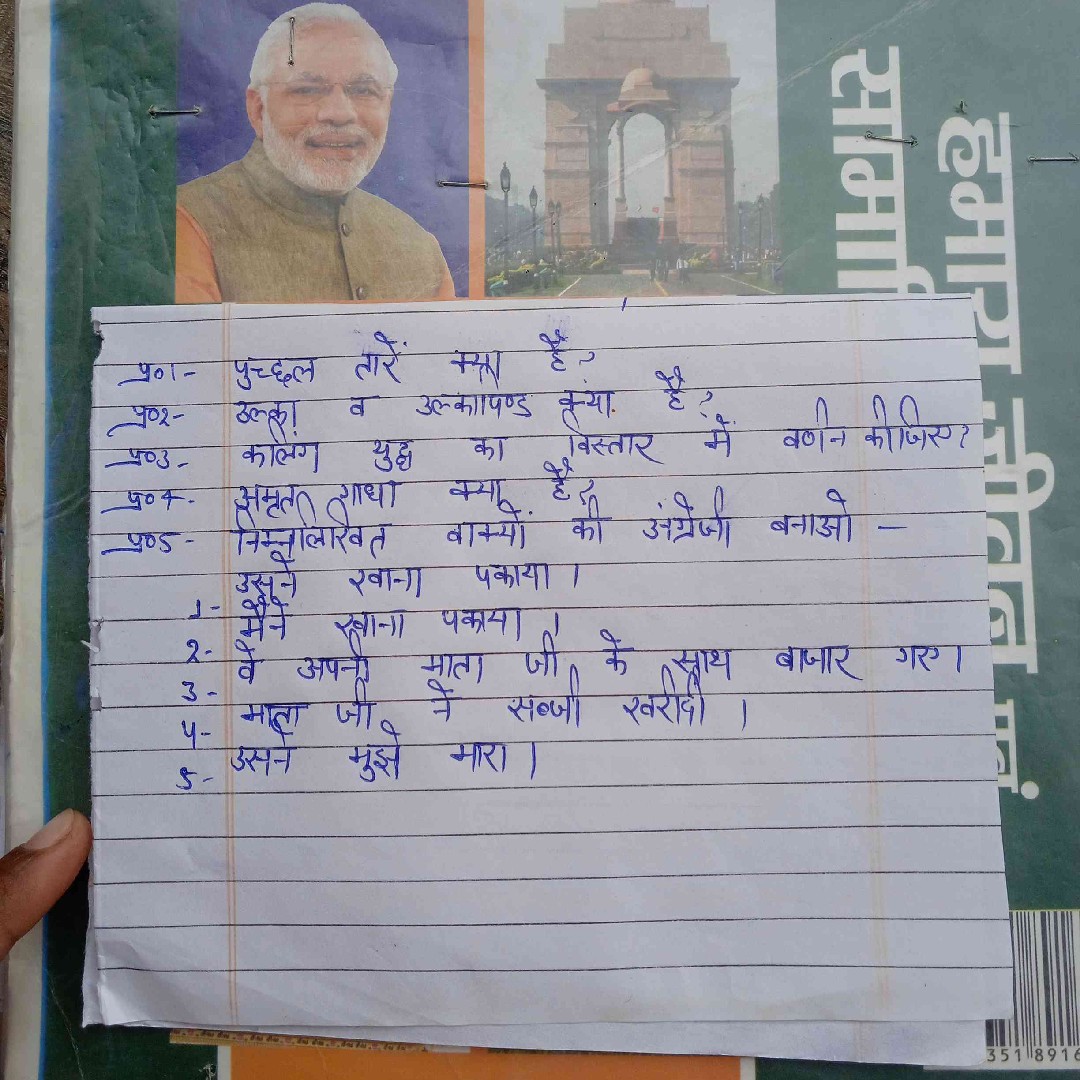 हमारा जीवन एवं
सामाजि
प्र०1- पुच्छल तारें क्या है?
प्र०2- उल्का व उल्कापिण्ड क्या है?
प्र०3- कलिंग युद्ध का विस्तार में वर्णन कीजिए?
प्र०4- अमृत गाथा क्या है?
प्र०5- निम्नलिखित वाक्यों की अंग्रेजी बनाओ —
1- उसने खाना पकाया।
2- मैने खाना पकाया।
3- वे अपनी माता जी के साथ बाजार गए।
4- माता जी ने सब्जी खरीदी।
5- उसने मुझे मारा।
3518916